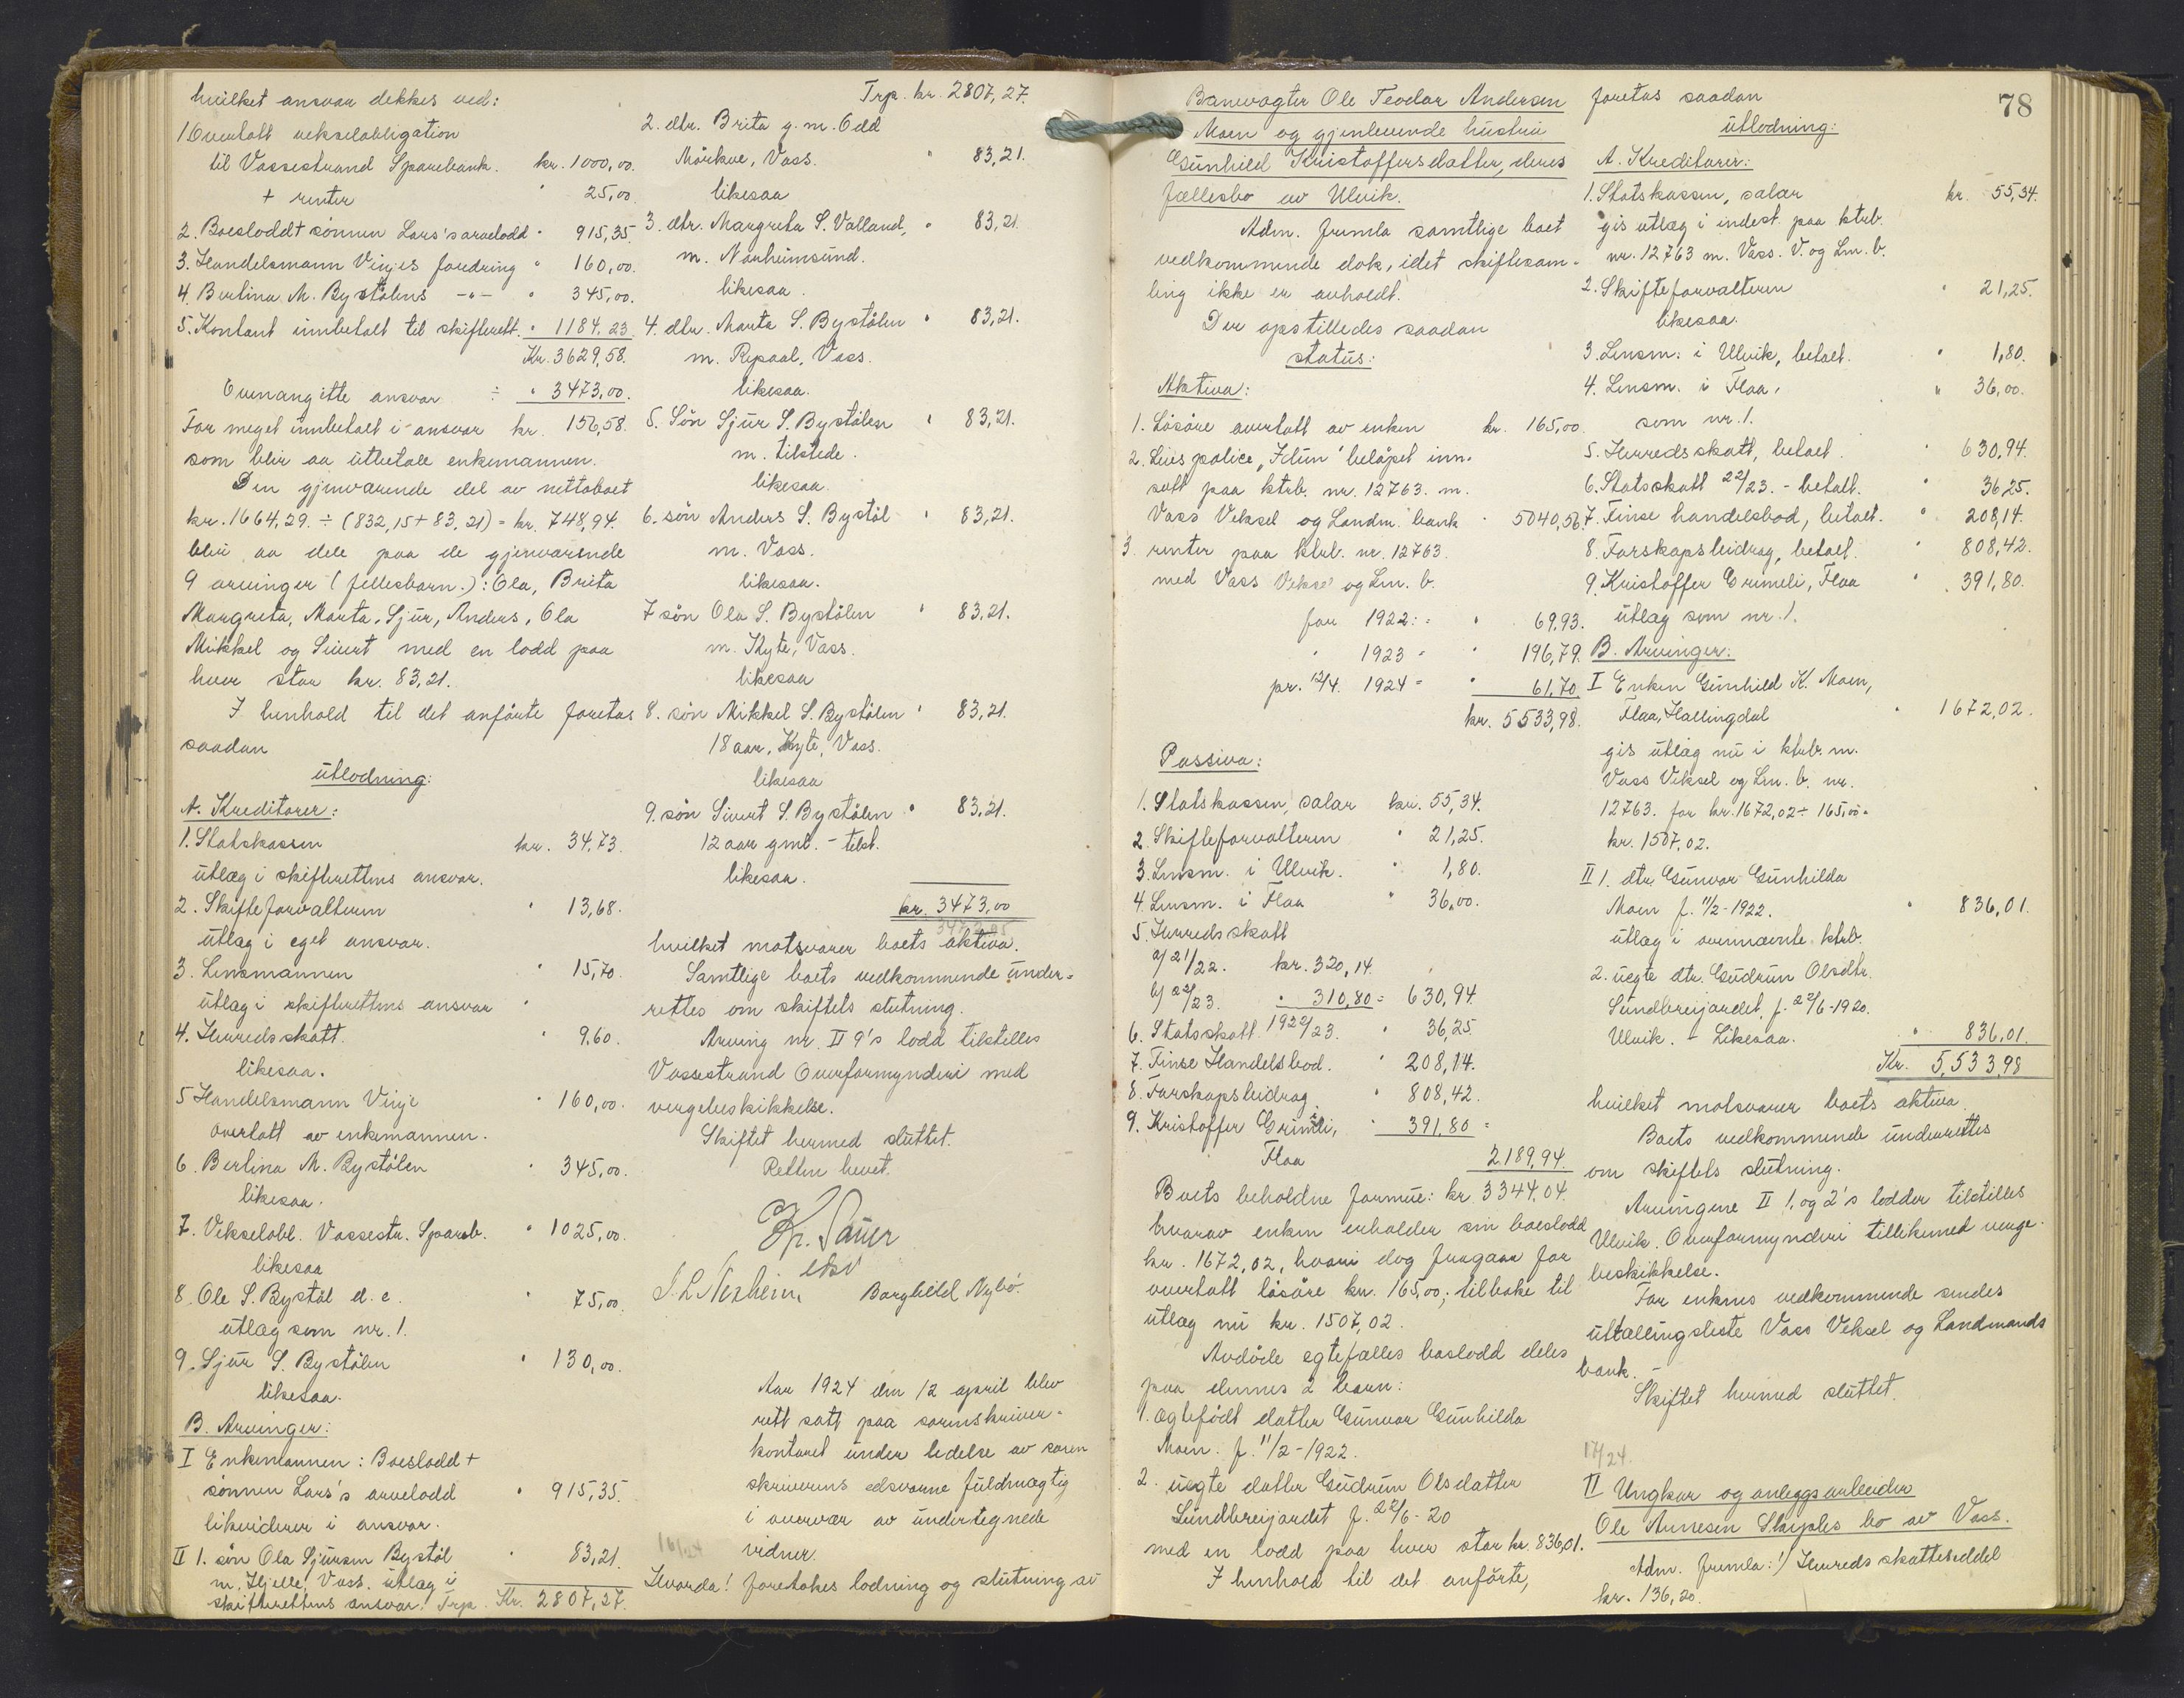 hvilket ansvar dekkes ved:
1 Overtatt vekselobligation
til Vossestrand Sparebank. kr. 1000,00.
+ renter " 25,00.
2. Boeslodd + sönnen Lars's arvelodd " 915,35.
3. Handelsmann Vinjes fordring " 160,00.
4. Berlina M. Bystölens -"- " 345,00.
5. Kontant innbetalt til skifterett. " 1184,23
Kr. 3629,58.
Ovenangitte ansvar ÷ " 3473,00.
For meget innbetalt i ansvar kr. 156,58.
som blir aa utbetale enkemannen.
Den gjenvärende del av nettoboet
kr. 1664,29. ÷ (832,15 + 83,21) = kr. 748,94.
blir aa dele paa de gjenvärende
9 arvinger (fellesbarn.): Ola, Brita
Margreta, Marta, Sjur, Anders, Ola
Mikkel og Sivert med en lodd paa
hver stor kr. 83,21.
I henhold til det anförte foretas
saadan
utlodning:
A. Kreditorer:
1. Statskassen kr. 34,73.
utlæg i skifterettens ansvar.
2. Skifteforvalteren " 13,68.
utlæg i eget ansvar.
3. Lensmannen " 15,70.
utlæg i skifterettens ansvar "
4. Herredsskatt. " 9,60.
likesaa.
5 Handelsmann Vinje " 160,00.
overtatt av enkemannen.
6. Berlina M. Bystölen " 345,00.
likesaa.
7. Vekselobl. Vossestr. Spareb. " 1025,00.
likesaa
8. Ole S. Bystöl d. e. " 75,00.
utlæg som nr. 1.
9. Sjur S. Bystölen " 130,00.
likesaa.
B. Arvinger:
I Enkemannen: Boeslodd +
sönnen Lars's arvelodd " 915,35.
likviderer i ansvar.
II 1. sön Ola Sjursen Bystöl " 83,21.
m. Hjelle, Voss. utlæg i
skifterettens ansvar. Trp. Kr. 2807,27.
Trp. kr. 2807,27.
2. dtr. Brita g. m. Odd
Mörkve, Voss. " 83,21.
likesaa
3. dtr. Margreta S. Valland, " 83,21
m. Norheimsund.
likesaa.
4. dtr. Marta S. Bystölen " 83,21.
m. Repaal, Voss.
likesaa.
5. Sön Sjur S. Bystölen " 83,21.
m. tilstede.
likesaa.
6. sön Anders S. Bystöl " 83,21.
m. Voss.
likesaa.
7 sön Ola S. Bystölen " 83,21.
m. Kyte, Voss.
likesaa
8. sön Mikkel S. Bystölen " 83,21.
18 aar, Kyte, Voss.
likesaa
9. sön Sivert S. Bystölen " 83,21.
12 aar gml. - tilst.
likesaa.
kr. 3473,00
hvilket motsvarer boets aktiva.
Samtlige boets vedkommende under-
rettes om skiftets slutning.
Arving nr. II 9's lodd tilstilles
Vossestrand Overformynderi med
vergebeskikkelse.
Skiftet hermed sluttet.
Retten hevet.
Kr. Sauer
edsv
J. L. Nesheim, Borghild Nybö.
Aar 1924 den 12 april blev
rett satt paa sorenskriver-
kontoret under ledelse av soren
skriverens edsvorne fuldmægtig
i overvær av undertegnede
vidner.
16/24
Hvorda! foretokes lodning og slutning av
78
Banevogter Ole Teodor Andersen
Moen og gjenlevende hustru
Gunhild Kristoffersdatter, deres
fællesbo av Ulvik.
Adm. fremla samtlige boet
vedkommende dok, idet skiftesam-
ling ikke er avholdt.
Der opstilledes saadan
status:
Aktiva:
1. Lösöre overtatt av enken kr. 165,00.
2. Livspolice "Idun" belöpet inn-
satt paa ktrb. nr. 12763. m.
Voss Veksel og Landm. bank " 5040,56.
3. renter paa ktrb. nr. 12763.
med Voss Veksel og Lm. b.
for 1922: = " 69,93.
" 1923 = " 196,79.
pr. 12/4. 1924 = " 61,70
kr. 5533,98.
Passiva:
1. Statskassen, salar kr. 55,34.
2. Skifteforvalteren " 21,25.
3. Lensm. i Ulvik. " 1,80.
4. Lensm. i Flaa " 36,00.
5. Herredsskatt
a/ 21/22. kr. 320,14.
b/ 22/23. " 310,80 = 630,94.
6. Statsskatt 1922/23. " 36,25.
7. Finse Handelsbod. " 208,14.
8. Farskapsbidrag " 808,42.
9. Kristoffer Grimeli, " 391,80 =
Flaa 2189,94.
Boets beholdne formue: kr 3344,04.
hvorav enken erholder sin boeslodd
kr. 1672,02, hvori dog fragaar for
overtatt lösöre kr. 165,00; tilbake til
utlæg nu kr. 1507,02.
Avdöde egtefælles boslodd deles
paa dennes 2 barn:
1. ægtefödt datter Gunvor Gunhilda
Moen. f. 11/2-1922.
2. uegte datter Gudrun Olsdatter
Sundbreijordet f. 22/6-20
med en lodd paa hver stor kr. 836,01.
I henhold til det anförte,
foretas saadan
utlodning:
A. Kreditorer:
1. Statskassen, salar kr. 55,34.
gis utlæg i indest. paa ktrb.
nr. 12763 m. Voss. V. og Lm. b.
2. Skifteforvalteren " 21,25.
likesaa.
3. Lensm. i Ulvik, betalt. " 1,80.
4. Lensm. i Flaa, " 36,00.
som nr. 1.
5. Herredsskatt, betalt. " 630,94.
6. Statsskatt 22/23. - betalt. " 36,25.
7. Finse handelsbod, betalt. " 208,14.
8. Farskapsbidrag, betalt. " 808,42.
9. Kristoffer Grimeli, Flaa " 391,80.
utlæg som nr. 1.
B. Arvinger:
I Enken Gunhild K. Moen,
Flaa, Hallingdal " 1672,02.
gis utlæg nu i ktrb. m.
Voss Veksel og Lm. b. nr.
12763. for kr. 1672,02 ÷ 165,00 =
kr. 1507,02.
II 1. dtr. Gunvor Gunhilda
Moen f. 11/2-1922. " 836,01.
utlæg i ovennævnte ktrb.
2. uegte dtr. Gudrun Olsdtr.
Sundbreijordet, f. 22/6-1920.
Ulvik. - Likesaa. " 836,01.
Kr. 5,533,98
hvilket motsvarer boets aktiva.
Boets vedkommende underrettes
om skiftets slutning.
Arvingene II 1. og 2's lodder tilstilles
Ulvik. Overformynderi tillikemed verge-
beskikkelse.
For enkens vedkommende sendes
uttællingsliste Voss Veksel og Landmands
bank.
Skiftet hermed sluttet.
17/24.
II Ungkar og anlegsarbeider
Ole Arnesen Skiples bo av Voss.
Adm. fremla: 1) Herredsskatteseddel
kr. 136,20.